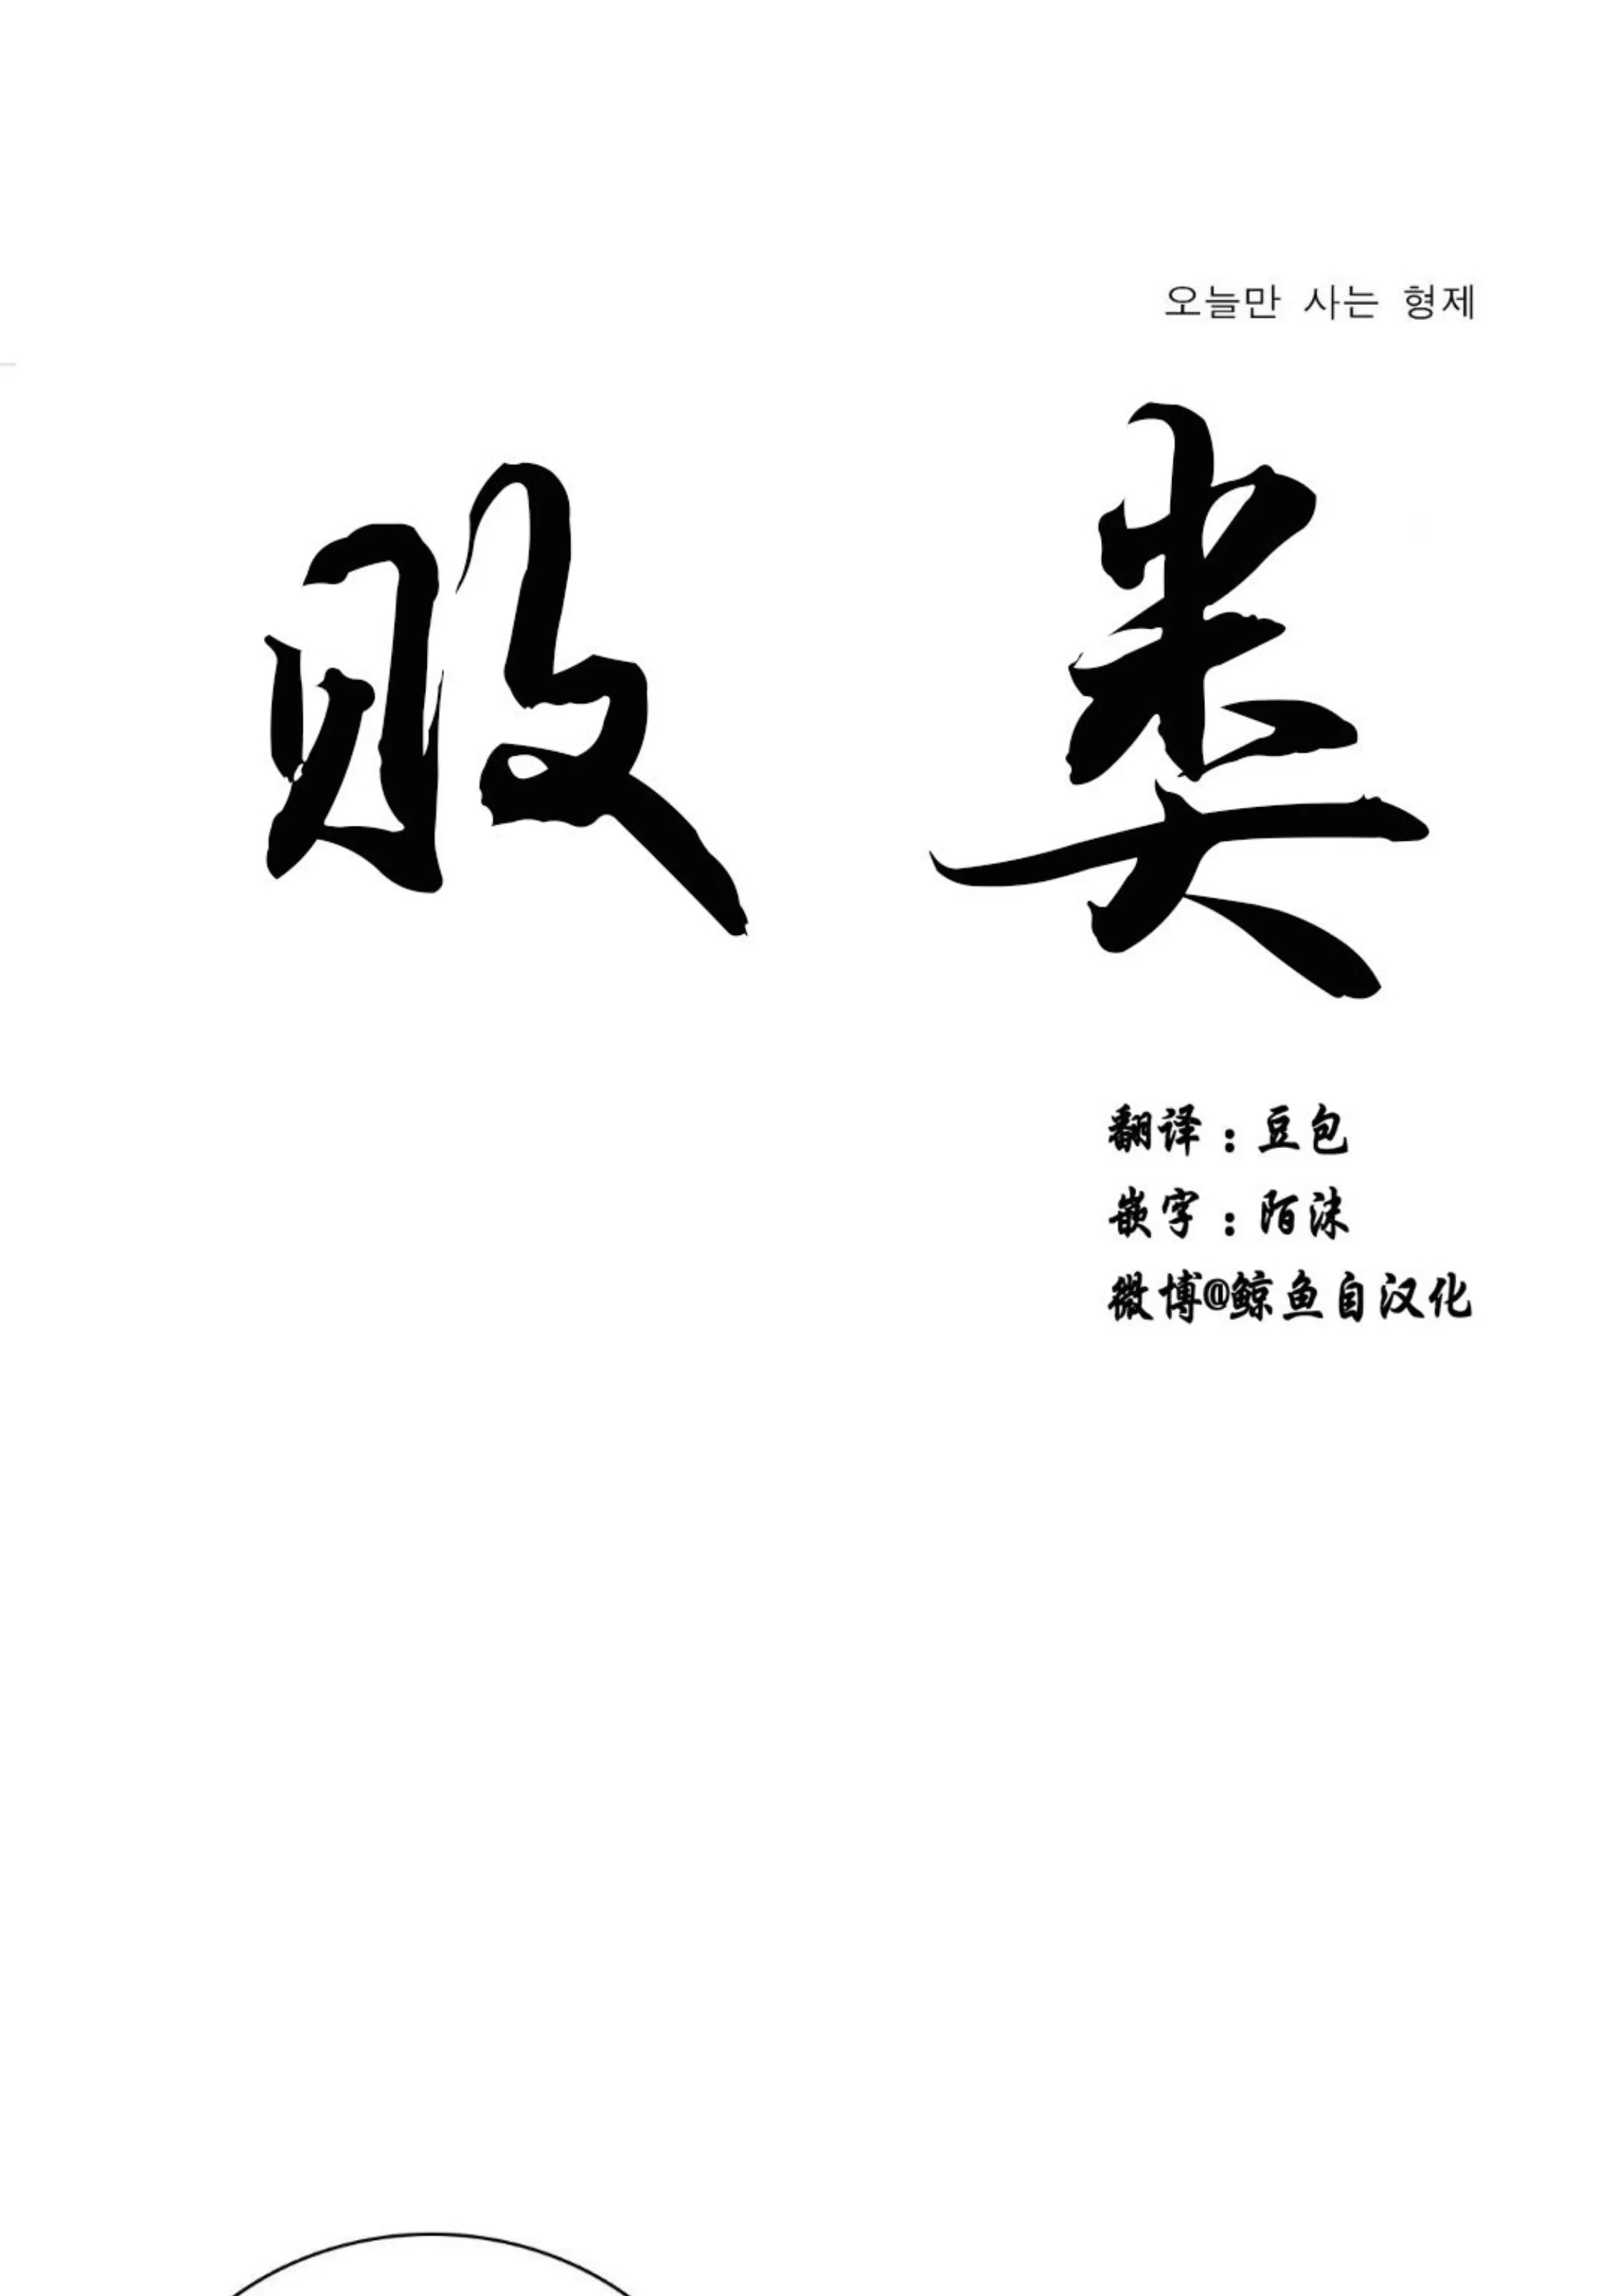 오늘만 사는 형제
败类
翻译：豆包
嵌字：陌沫
微博@鲸鱼自汉化